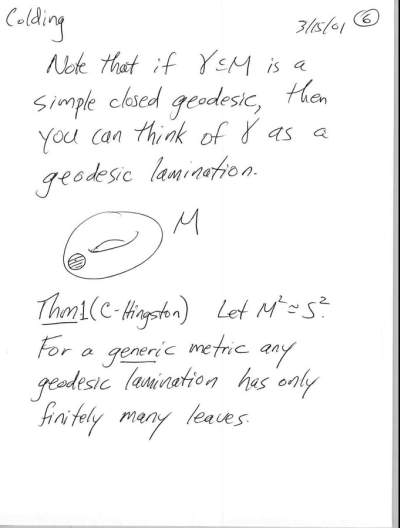 Colding 3/15/01 6
Note that if γ ⊆ M is a
simple closed geodesic, then
you can think of γ as a
geodesic lamination.
M
Thm1 (C-Hingston) Let M² ≃ S².
For a generic metric any
geodesic lamination has only
finitely many leaves.